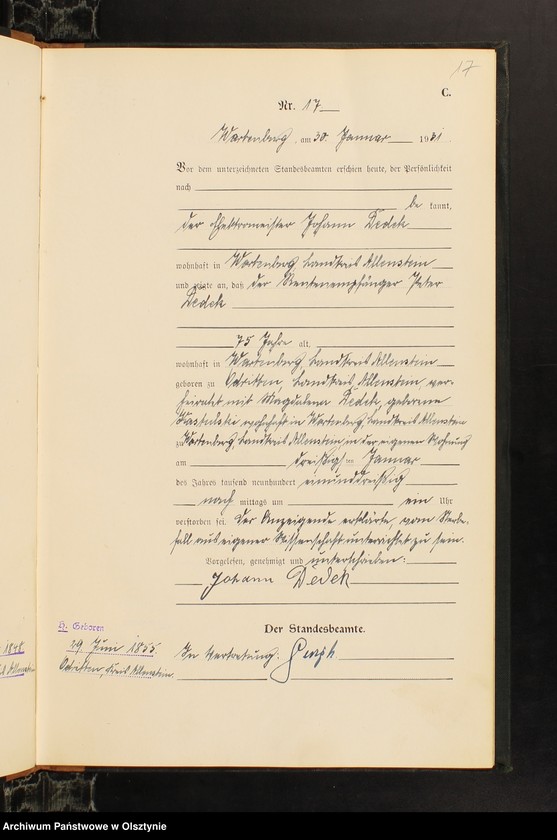 17
C.
Nr. 17
Wartenburg, am 30. Januar 1931
Vor dem unterzeichneten Standesbeamten erschien heute, der Persönlichkeit
nach
be kannt,
der Elektromeister Johann Dedek
wohnhaft in Wartenburg, Landkreis Allenstein
und zeigte an, daß der Rentenempfänger Peter
Dedek
75 Jahre alt,
wohnhaft in Wartenburg, Landkreis Allenstein
geboren zu Odritten, Landkreis Allenstein, ver-
heiratet mit Magdalena Dedek, geborene
wohnhaft in Wartenburg, Landkreis Allenstein
zu Wartenburg, Landkreis Allenstein in der eigenen Wohnung
am dreißigsten Januar
des Jahres tausend neunhundert einunddreißig
nach mittags um ein Uhr
verstorben sei. Der Anzeigende erklärte, vom Sterbe-
fall aus eigener Wissenschaft unterrichtet zu sein.
Vorgelesen, genehmigt und unterschrieben:
Johann Dedek
Der Standesbeamte.
In Vertretung:
H. Geboren
29. Juni 1855.
Odritten, Kreis Allenstein.
1848
Allenstein
Archiwum Państwowe w Olsztynie